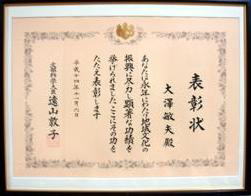 表彰状
大澤敏夫殿
あなたは永年にわたり地域文化の
振興に尽力し顕著な功績を
挙げられましたここにその功を
たたえ表彰します
平成十四年十一月六日
文部科学大臣 遠山敦子